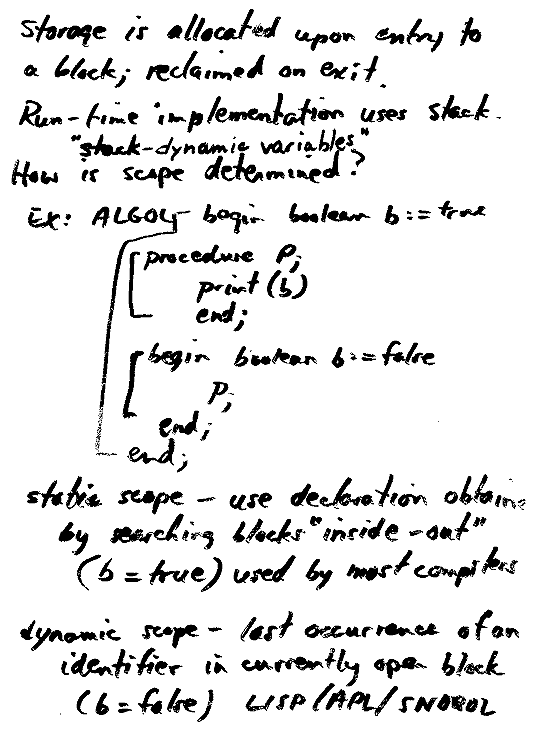 Storage is allocated upon entry to
a block; reclaimed on exit.
Run-time implementation uses stack.
"stack-dynamic variables"
How is scope determined?
Ex: ALGOL begin boolean b := true
procedure P;
print (b)
end;
begin boolean b := false
P;
end;
end;
static scope - use declaration obtaine
by searching blocks "inside-out"
(b = true) used by most compilers
dynamic scope - last occurrence of an
identifier in currently open block
(b = false) LISP/APL/SNOBOL